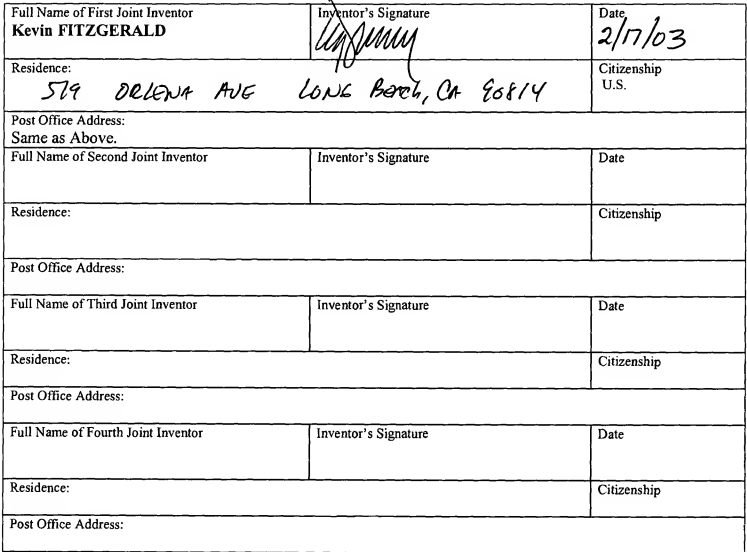 Full Name of First Joint Inventor Inventor's Signature Date
Kevin FITZGERALD 2/17/03
Residence: Citizenship
519 ORLENA AVE LONG Beach, CA 90814 U.S.
Post Office Address:
Same as Above.
Full Name of Second Joint Inventor Inventor's Signature Date
Residence: Citizenship
Post Office Address:
Full Name of Third Joint Inventor Inventor's Signature Date
Residence: Citizenship
Post Office Address:
Full Name of Fourth Joint Inventor Inventor's Signature Date
Residence: Citizenship
Post Office Address: